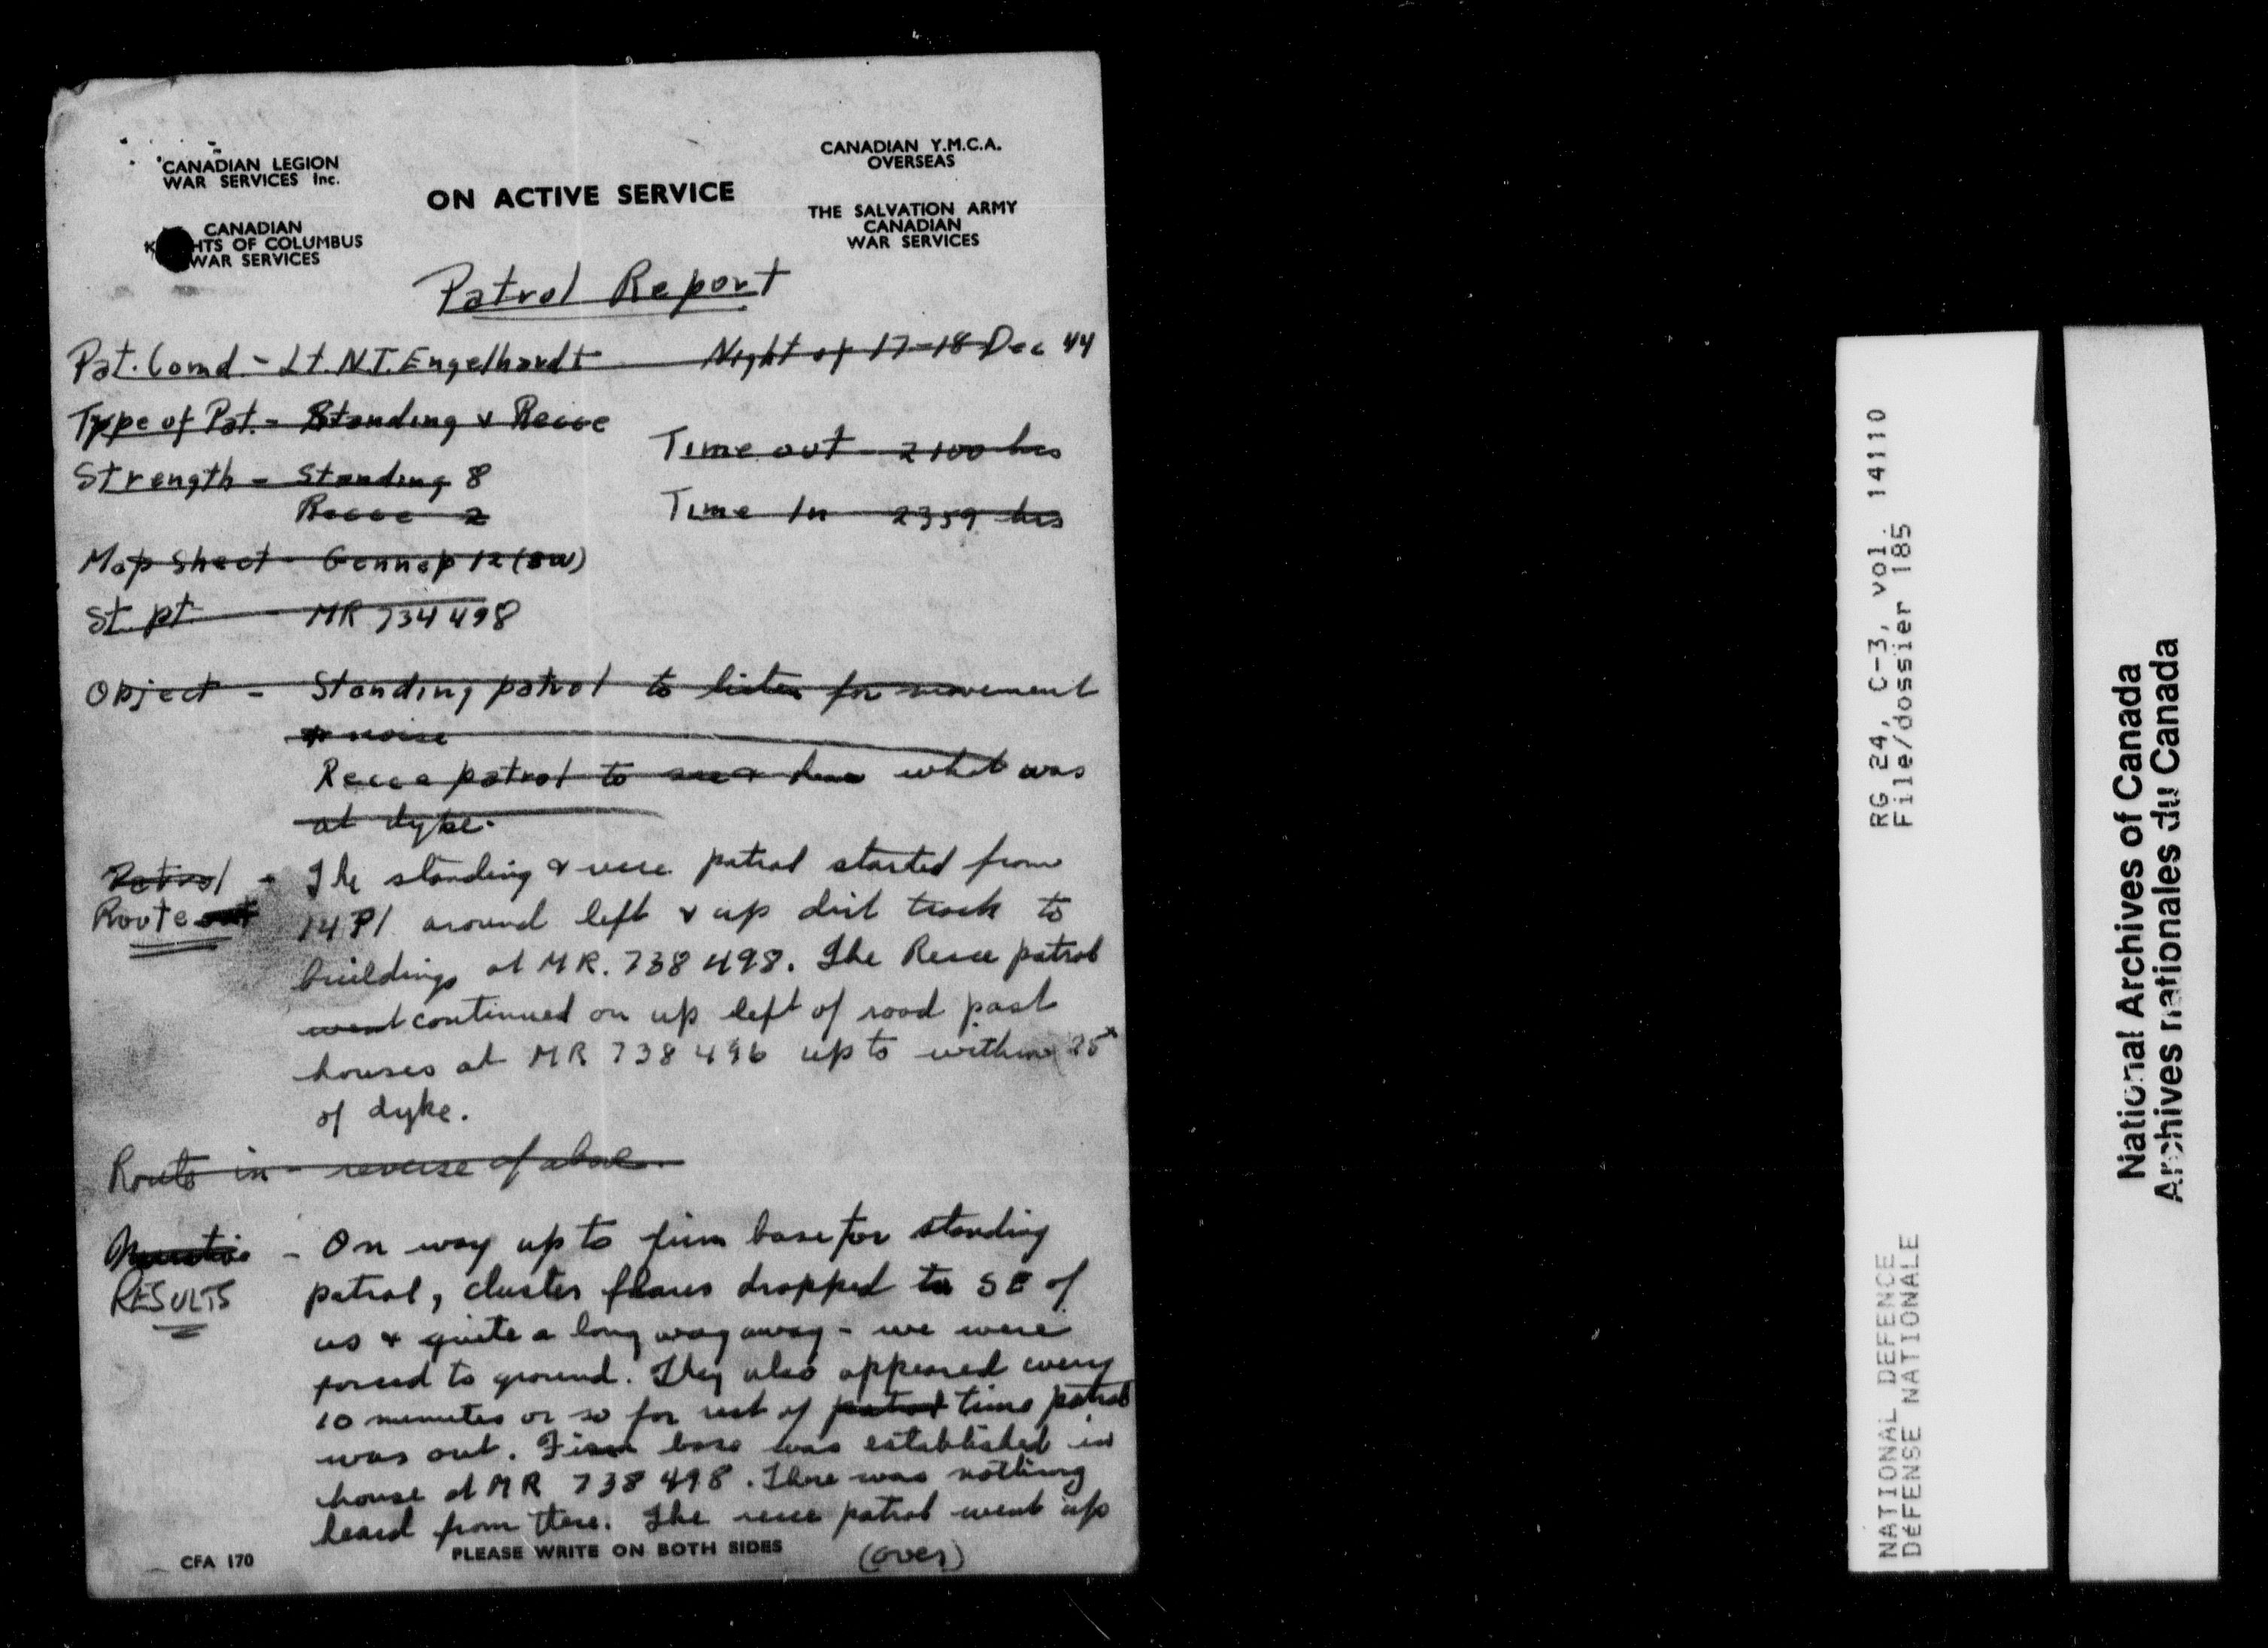 CANADIAN LEGION
WAR SERVICES Inc.
CANADIAN
HTS OF COLUMBUS
WAR SERVICES
ON ACTIVE SERVICE
CANADIAN Y.M.C.A.
OVERSEAS
THE SALVATION ARMY
CANADIAN
WAR SERVICES
Patrol Report
Pat. Comd - Lt. N.T. Engelhardt Night of 17-18 Dec 44
Type of Pat. - Standing & Recce
Time out - 2100 hrs
Strength - Standing 8
Recce 2
Time In 2359 hrs
Map Sheet - Gennep 12 (SW)
St. pt. - MR 734498
Object - Standing patrol to listen for movement
& noise
Recce patrol to see & hear what was
at dyke.
Patrol - The standing & recce patrol started from
Route out 14 Pl around left & up dirt track to
buildings at MR. 738498. The Recce patrol
went continued on up left of road past
houses at MR 738496 up to within 25x
of dyke.
Route in - reverse of above.
Narrative - On way up to firm base for standing
RESULTS patrol, cluster flares dropped to SE of
us & quite a long way away - we were
forced to ground. They also appeared every
10 minutes or so for rest of patrol time patrol
was out. Firm base was established in
house at MR 738498. There was nothing
heard from there. The recce patrol went up
CFA 170
PLEASE WRITE ON BOTH SIDES
(over)
RG 24, C-3, vol. 14110
File/dossier 185
NATIONAL DEFENCE
DÉFENSE NATIONALE
National Archives of Canada
Archives nationales du Canada